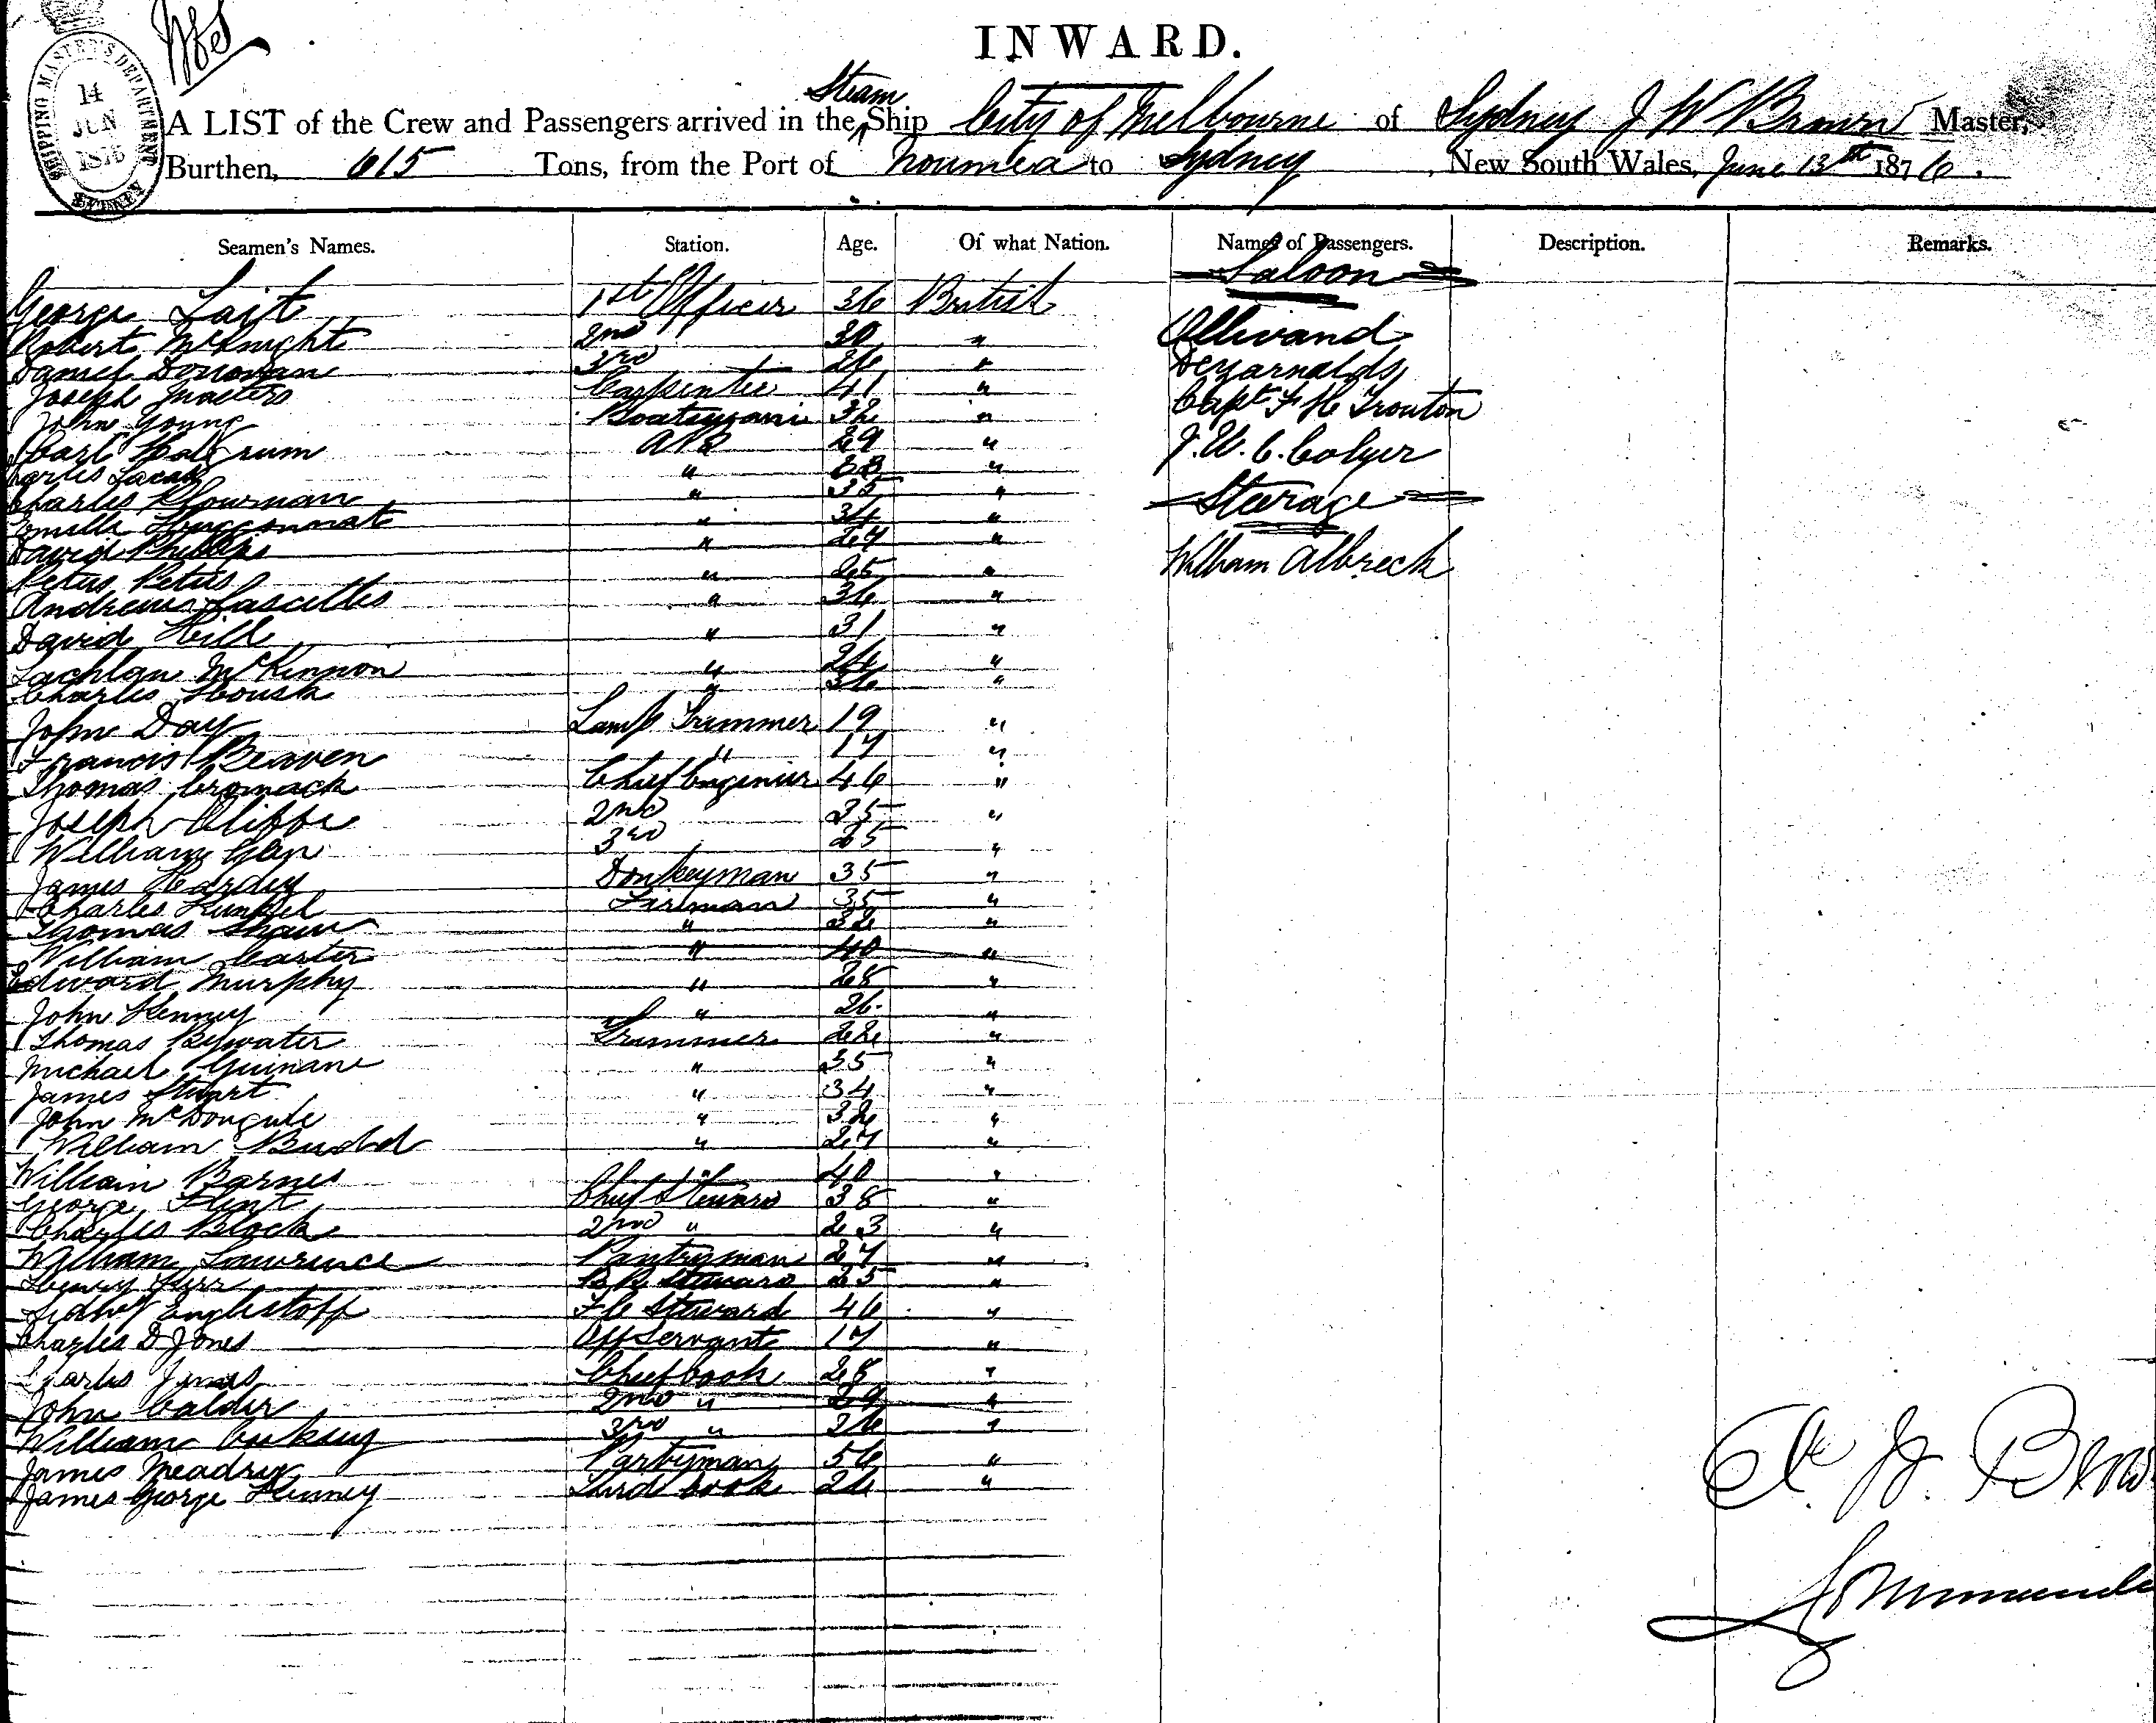 INWARD.
SHIPPING MASTER'S DEPARTMENT
14
JUN
1876
SYDNEY
Steam
A LIST of the Crew and Passengers arrived in the Ship City of Melbourne of Sydney J W Brown Master,
Burthen, 615 Tons, from the Port of Noumea to Sydney, New South Wales, June 13th 1876.
Seamen's Names. Station. Age. Of what Nation. Names of Passengers. Description. Remarks.
Saloon
George Tait 1st Officer 36 British
Ollivand
Robert McKnight 2nd 30 "
Daniel Donovan 3rd 26 "
Joseph Masters Carpenter 41 "
Capt F H Trouton
John Young Boatswain 32 "
Carl AB 29 "
J. U. C. Colyer
Charles Lucas " 28 "
Charles Plowman " 35 "
Steerage
" 34 "
David Phillips " 27 "
William Albreck
Peter Peters " 25 "
Andrew Lascelles " 36 "
David Hill " 31 "
Lachlan McKinnon " 24 "
Charles " 36 "
John Day Lamp Trimmer 19 "
Francis Beaven " 17 "
Thomas Cromack Chief Engineer 46 "
Joseph 2nd 35 "
William 3rd 25 "
James Hardy Donkeyman 35 "
Charles Kunkel Fireman 35 "
Thomas Shaw " 32 "
William Carter " 40 "
Edward Murphy " 28 "
John Kenney " 26 "
Thomas Bywater Trimmer 22 "
Michael Guinane " 35 "
James Stuart " 34 "
John McDougule " 32 "
William " 27 "
William Barnes " 40 "
George Flint Chief Steward 38 "
Charles Block 2nd " 23 "
William Lawrence Pantryman 27 "
Henry Kerr B R Steward 25 "
Sidney Englestoff F C Steward 46 "
Charles D Jones Off Servant 17 "
Charles James Chief Cook 28 "
John Calder 2nd " 29 "
William 3rd " 26 "
James 56 "
James George Kenney Third Cook 22 "